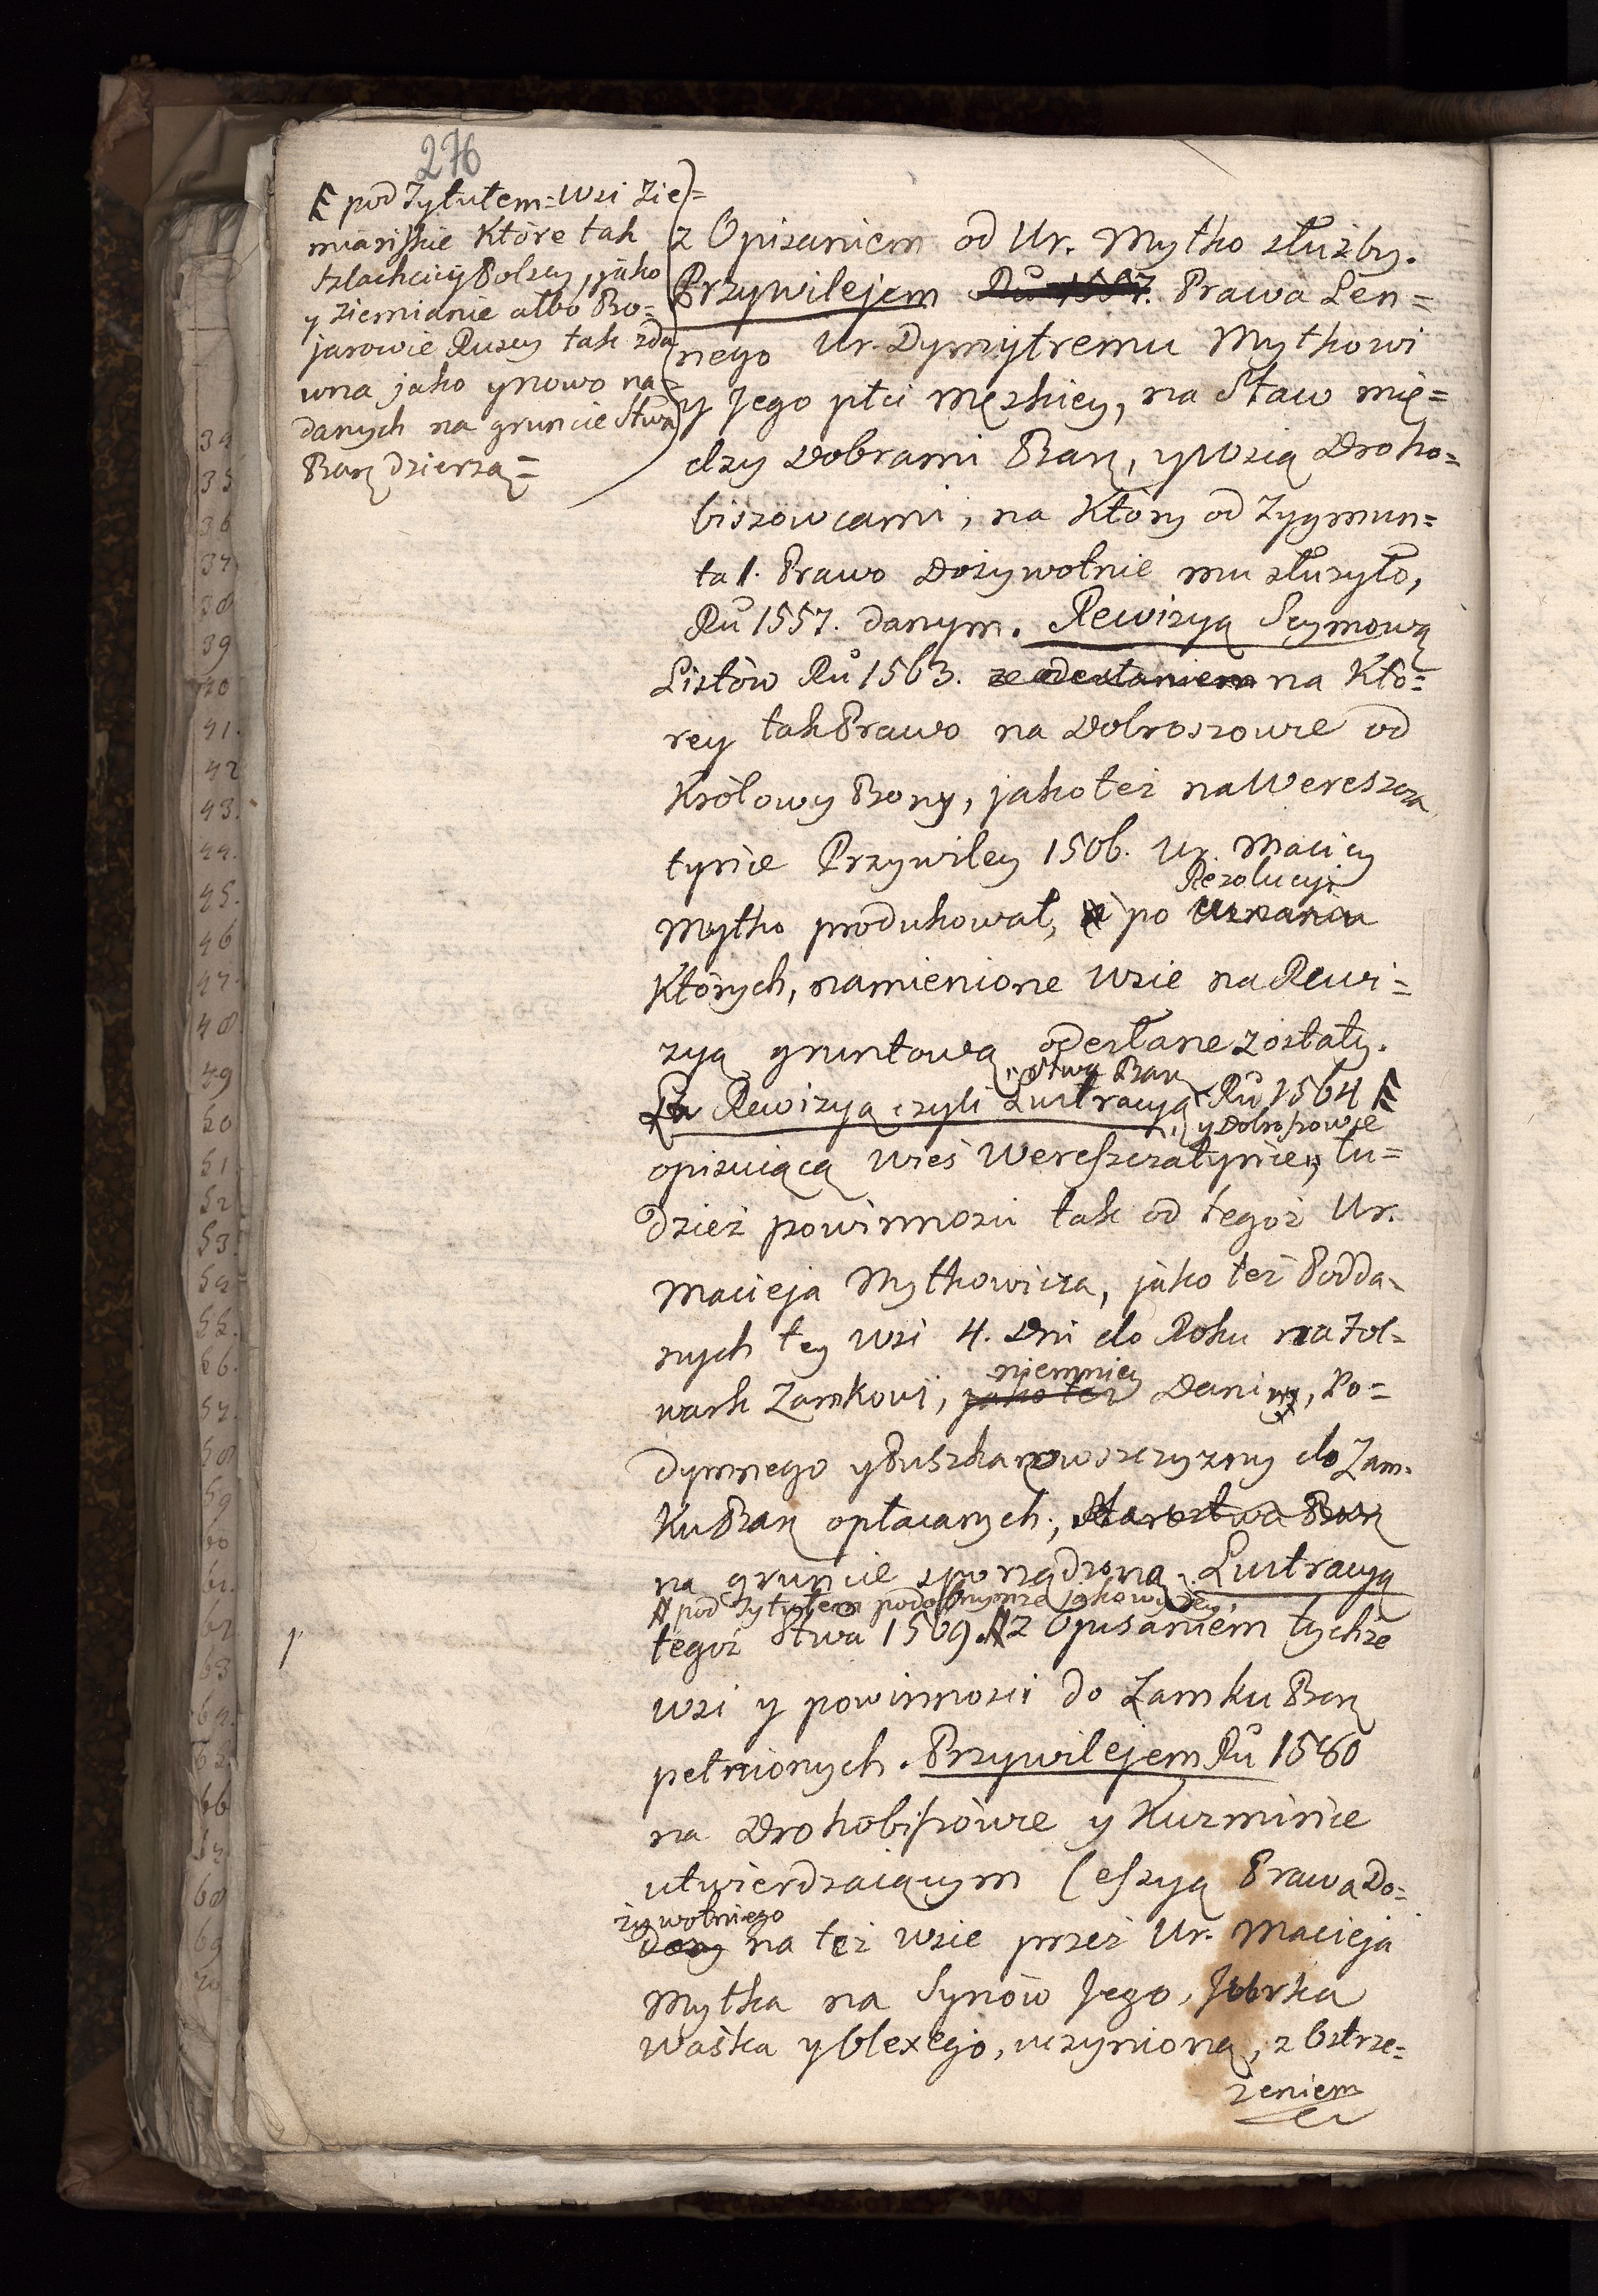 276
pod Tytułem = Wsi Zie=
miańskie Które tak
Szlachcicy Polscy, jako
y Ziemianie albo Bo=
jarowie Ruscy tak zda
wna jako y nowo na=
danych na gruncie Stwa
Barſ dzierżą =
z Opisaniem od Ur. Mytko służby.
Przywilejem Ru 1557. Prawa Len=
nego Ur. Dymytremu Mytkowi
y Jego płci męskiey, na Staw mię=
dzy Dobrami Barſ, y Wsią Droho=
biszowcami, na Który od Zygmun=
ta I. Prawo Dożywotnie mu służyło,
Ru 1557. danym. Rewizyą Seymową
Listów Ru 1563. ze odesłaniem na Któ=
rey tak Prawo na Dobroszowce od
Królowy Bony, jako też na Wereszcza
tyńce Przywiley 1506. Ur. Maciey
Rezolucyi
Mytko produkował, po Uznaniu
Których, namienione Wsie na Rewi=
zyą gruntową odesłane zostały.
Stwa Barſ
Rewizyą czyli Lustracyą Ru 1564
y Dobroszowce
opisuiącą Wieś Wereszczatyńce, tu=
dzież powinności tak od tegoż Ur.
Macieja Mytkowicza, jako też Podda=
nych tey Wsi 4. Dni do Roku na Fol=
niemniey
wark Zamkowi, jako też Daniny, Po=
dymnego y Puszkarowszczyzny do Zam=
Ku Barſ opłacanych; Starostwa Barſ
na gruncie sporządzoną. Lustracyą
pod Tytułem podobnymże jakowy
tegoż Stwa 1569. z Opisaniem tychże
wsi y powinności do Zamku Barſ
pełnionych. Przywilejem Ru 1580
na Drohobiszówce y Kuzmińce
utwierdzaiącym Cessyą Prawa Do=
żywotniego
doży na też wsie przez Ur. Macieja
Mytka na Synów Jego,
Waśka y Olexego, uczynioną, z Ostrze=
żeniem